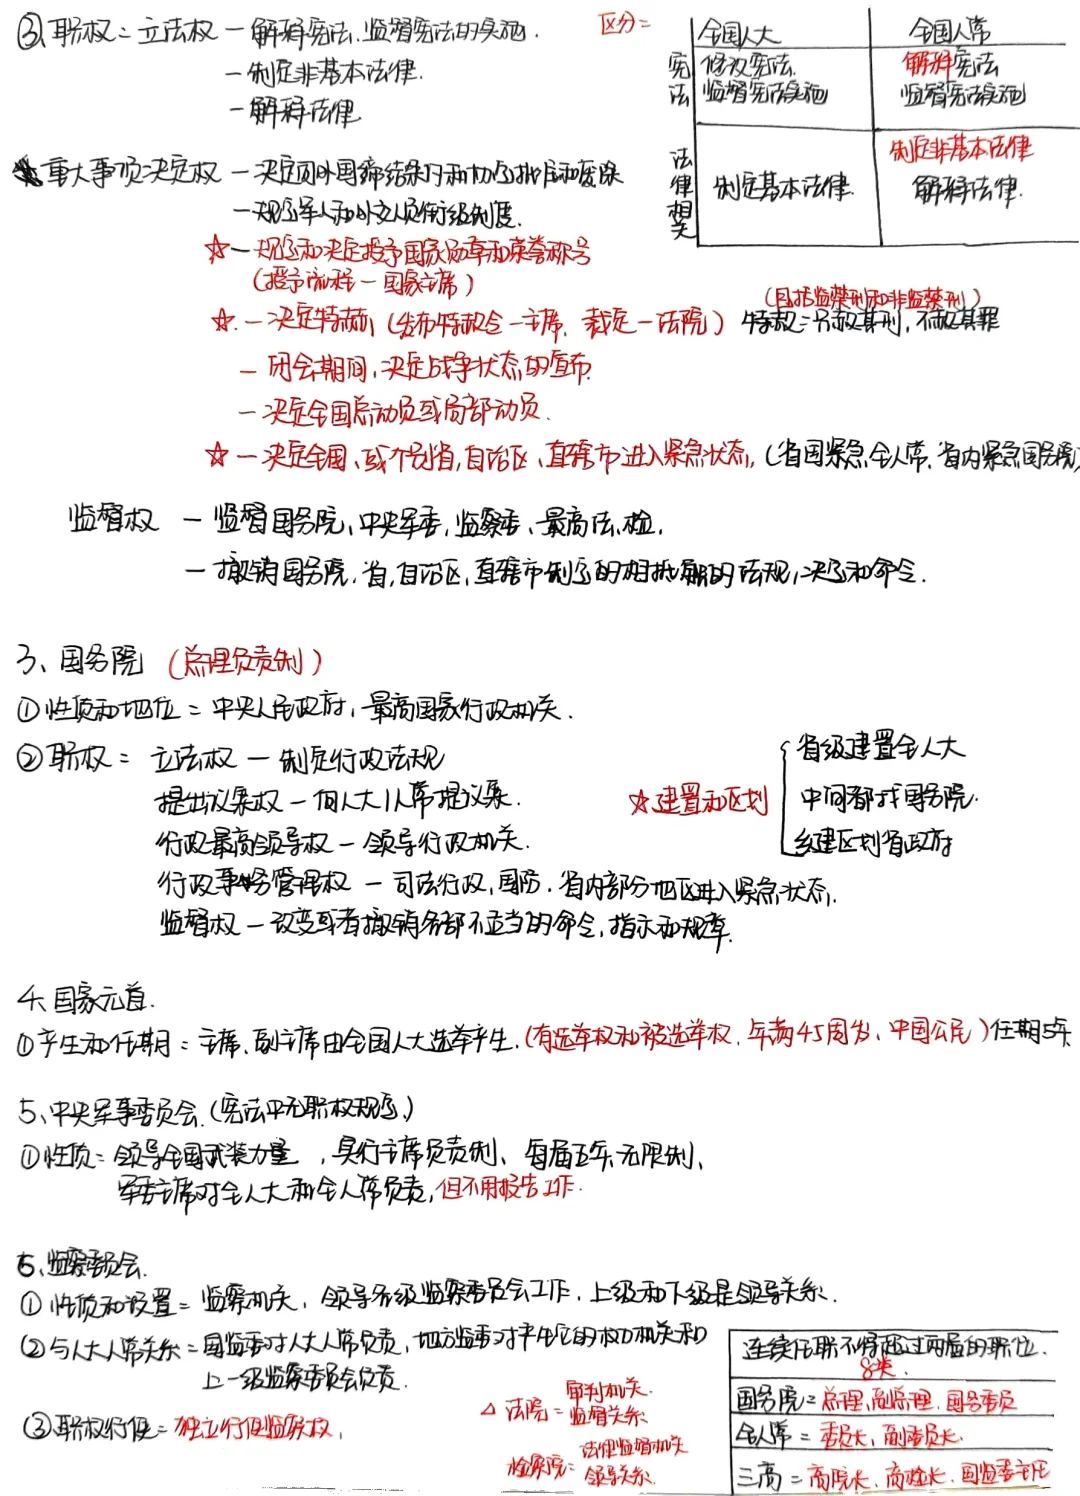 ③、职权：立法权 — 解释宪法、监督宪法的实施.
— 制定非基本法律.
— 解释法律
区分：
全国人大 全国人常
宪法 修改宪法. 监督宪法实施 解释宪法 监督宪法实施
法律相关 制定基本法律. 制定非基本法律 解释法律.
重大事项决定权 — 决定同外国缔结条约和协定批准和废除
— 规定军人和外交人员衔级制度.
☆ — 规定和决定授予国家勋章和荣誉称号
(授予流程 — 国家主席)
(包括监禁刑和非监禁刑)
☆. — 决定特赦, (发布特赦令 — 主席. 裁定 — 法院) 特赦：只赦其刑, 不赦其罪
— 闭会期间, 决定战争状态的宣布.
— 决定全国总动员或局部动员.
☆ — 决定全国、或个别省, 自治区、直辖市进入紧急状态, (省国紧急全人常. 省内紧急国务院)
监督权 — 监督国务院, 中央军委, 监察委、最高法、检.
— 撤销国务院. 省, 自治区, 直辖市制定的相抵触的法规, 决定和命令.
3、国务院 (总理负责制)
①性质和地位：中央人民政府, 最高国家行政机关.
②职权：立法权 — 制定行政法规
提出议案权 — 向人大人常提议案.
行政最高领导权 — 领导行政机关.
行政事务管理权 — 司法行政, 国防. 省内部分地区进入紧急状态.
监督权 — 改变或者撤销各部不适当的命令, 指示和规章.
☆建置和区划
省级建置全人大
中间都找国务院.
乡建区划省政府
4、国家元首.
①产生和任期：主席、副主席由全国人大选举产生. (有选举权和被选举权. 年满45周岁、中国公民) 任期5年
5、中央军事委员会. (宪法中无职权规定)
①性质：领导全国武装力量, 具行主席负责制、每届五年、无限制、
军委主席对全人大和全人常负责, 但不用报告工作.
6、监察委员会.
① 性质和设置：监察机关, 领导各级监察委员会工作, 上级和下级是领导关系.
②与人大人常关系：国监委对人大人常负责, 地方监委对产生它的权力机关和
上一级监察委员会负责.
③职权行使：独立行使监察权,
△ 法院： 审判机关. 监督关系.
检察院： 法律监督机关 领导关系.
连续任职不得超过两届的职位.
8类.
国务院：总理, 副总理, 国务委员
全人常：委员长, 副委员长.
三高：高院长, 高检长, 国监委主任